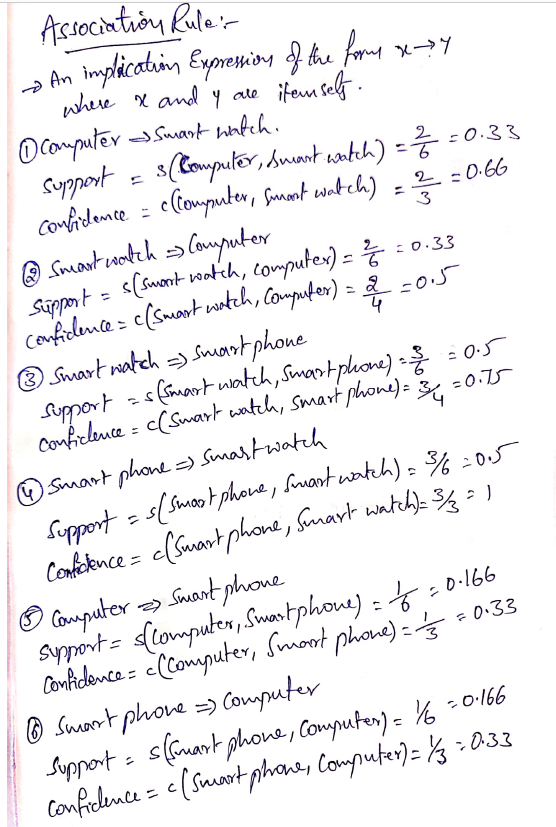 Association Rule:-
→ An implication Expression of the form x→y
where x and y are itemself.
① Computer ⇒ Smart watch.
Support = s(Computer, Smart watch) = 2/6 = 0.33
Confidence = c(Computer, Smart watch) = 2/3 = 0.66
② Smart watch ⇒ Computer
Support = s(Smart watch, Computer) = 2/6 = 0.33
Confidence = c(Smart watch, Computer) = 2/4 = 0.5
③ Smart watch ⇒ Smart phone
Support = s(Smart watch, Smart phone) = 3/6 = 0.5
Confidence = c(Smart watch, Smart phone) = 3/4 = 0.75
④ Smart phone ⇒ Smart watch
Support = s(Smart phone, Smart watch) = 3/6 = 0.5
Confidence = c(Smart phone, Smart watch) = 3/3 = 1
⑤ Computer ⇒ Smart phone
Support = s(Computer, Smart phone) = 1/6 = 0.166
Confidence = c(Computer, Smart phone) = 1/3 = 0.33
⑥ Smart phone ⇒ Computer
Support = s(Smart phone, Computer) = 1/6 = 0.166
Confidence = c(Smart phone, Computer) = 1/3 = 0.33